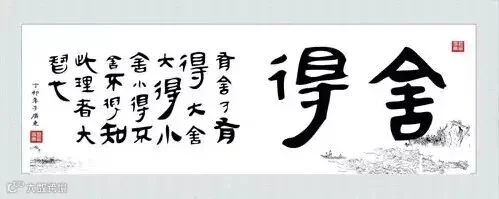 舍得
有舍有
得大舍
大得小
舍小得不
舍不得知
此理者大
智也
丁卯年于廣東